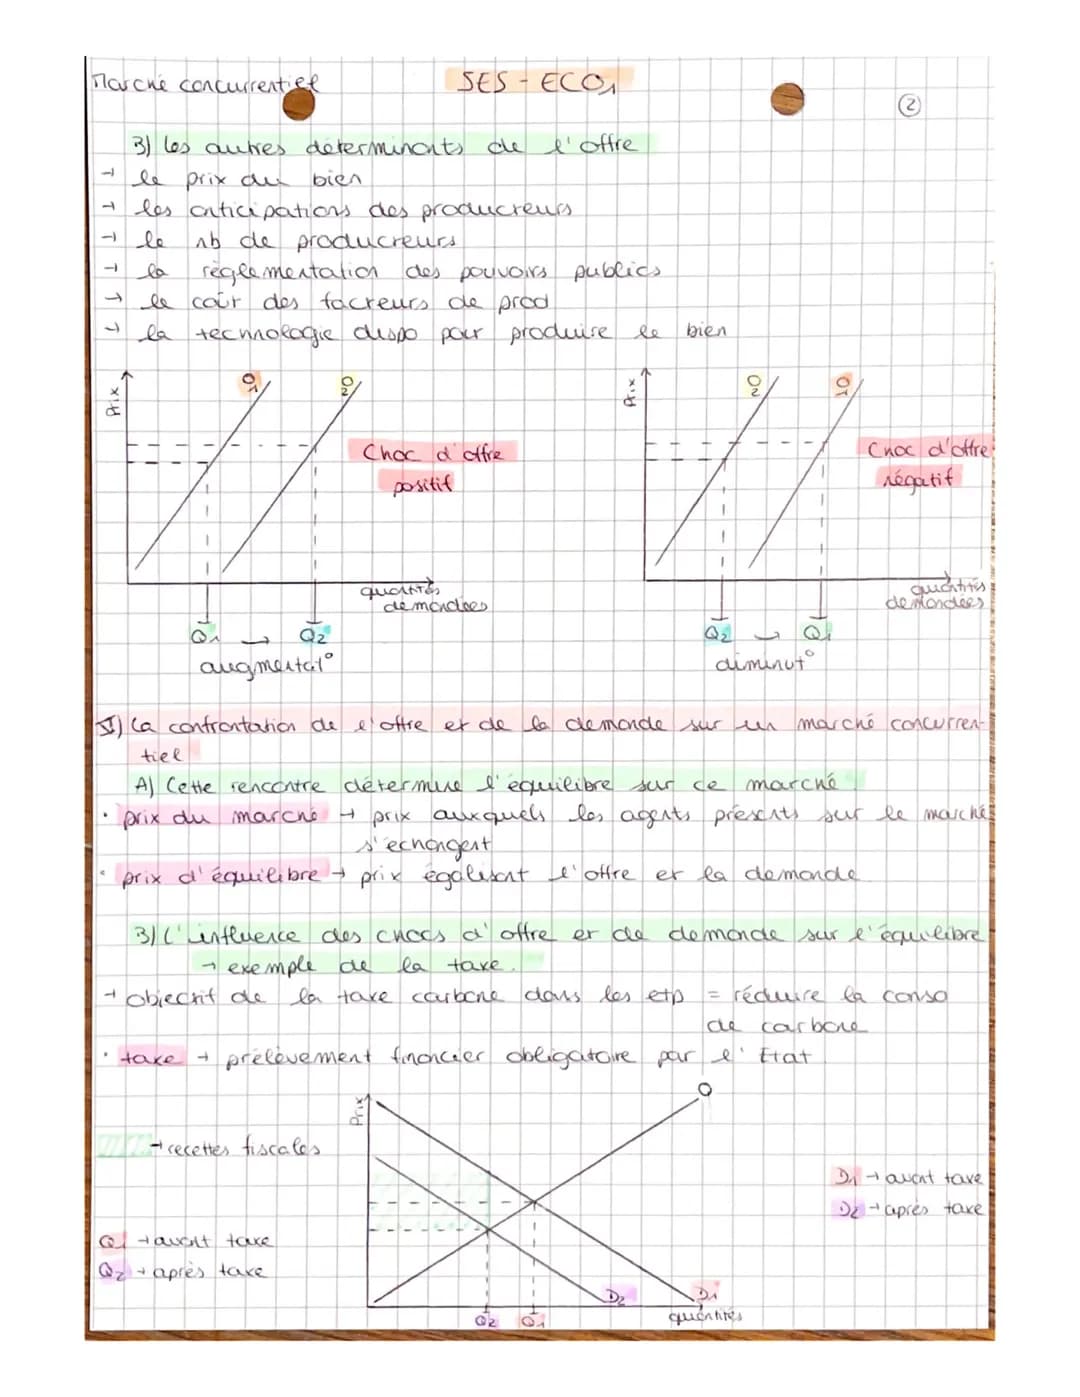 Marché concurrentiel
SES - ECO1
2
3) Les autres déterminants de l'offre
→ le prix du bien
→ les anticipations des producteurs
→ le nb de producteurs
→ la règlementation des pouvoirs publics
→ le coût des facteurs de prod
→ la technologie dispo pour produire le bien
Prix
O1
O2
Choc d'offre
positif
quantités
demandées
Q1 → Q2
augmentat°
Prix
O2
O1
Choc d'offre
négatif
quantités
demandées
Q2 → Q1
diminut°
II) La confrontation de l'offre et de la demande sur un marché concurren-
tiel
A) Cette rencontre détermine l'équilibre sur ce marché
• prix du marché → prix auxquels les agents présents sur le marché
s'échangent
• prix d'équilibre → prix égalisant l'offre et la demande
B) L'influence des chocs d'offre et de demande sur l'équilibre
→ exemple de la taxe.
→ objectif de la taxe carbone dans les etp = réduire la conso
de carbone
• taxe → prélèvement financier obligatoire par l'État
Prix
O
→ recettes fiscales
D1 → avant taxe
D2 → après taxe
Q1 → avant taxe
Q2 → après taxe
D2
D1
Q2
Q1
quantités